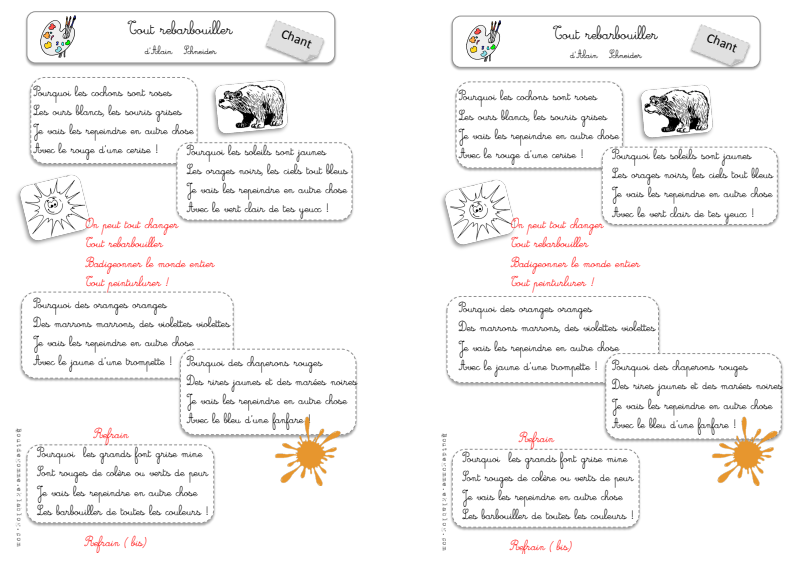 Tout rebarbouiller
d'Alain Schneider
Chant
Pourquoi les cochons sont roses
Les ours blancs, les souris grises
Je vais les repeindre en autre chose
Avec le rouge d'une cerise !
Pourquoi les soleils sont jaunes
Les orages noirs, les ciels tout bleus
Je vais les repeindre en autre chose
Avec le vert clair de tes yeux !
On peut tout changer
Tout rebarbouiller
Badigeonner le monde entier
Tout peinturlurer !
Pourquoi des oranges oranges
Des marrons marrons, des violettes violettes
Je vais les repeindre en autre chose
Avec le jaune d'une trompette !
Pourquoi des chaperons rouges
Des rires jaunes et des marées noires
Je vais les repeindre en autre chose
Avec le bleu d'une fanfare !
Refrain
Pourquoi les grands font grise mine
Sont rouges de colère ou verts de peur
Je vais les repeindre en autre chose
Les barbouiller de toutes les couleurs !
Refrain ( bis)
Tout rebarbouiller
d'Alain Schneider
Chant
Pourquoi les cochons sont roses
Les ours blancs, les souris grises
Je vais les repeindre en autre chose
Avec le rouge d'une cerise !
Pourquoi les soleils sont jaunes
Les orages noirs, les ciels tout bleus
Je vais les repeindre en autre chose
Avec le vert clair de tes yeux !
On peut tout changer
Tout rebarbouiller
Badigeonner le monde entier
Tout peinturlurer !
Pourquoi des oranges oranges
Des marrons marrons, des violettes violettes
Je vais les repeindre en autre chose
Avec le jaune d'une trompette !
Pourquoi des chaperons rouges
Des rires jaunes et des marées noires
Je vais les repeindre en autre chose
Avec le bleu d'une fanfare !
Refrain
Pourquoi les grands font grise mine
Sont rouges de colère ou verts de peur
Je vais les repeindre en autre chose
Les barbouiller de toutes les couleurs !
Refrain ( bis)